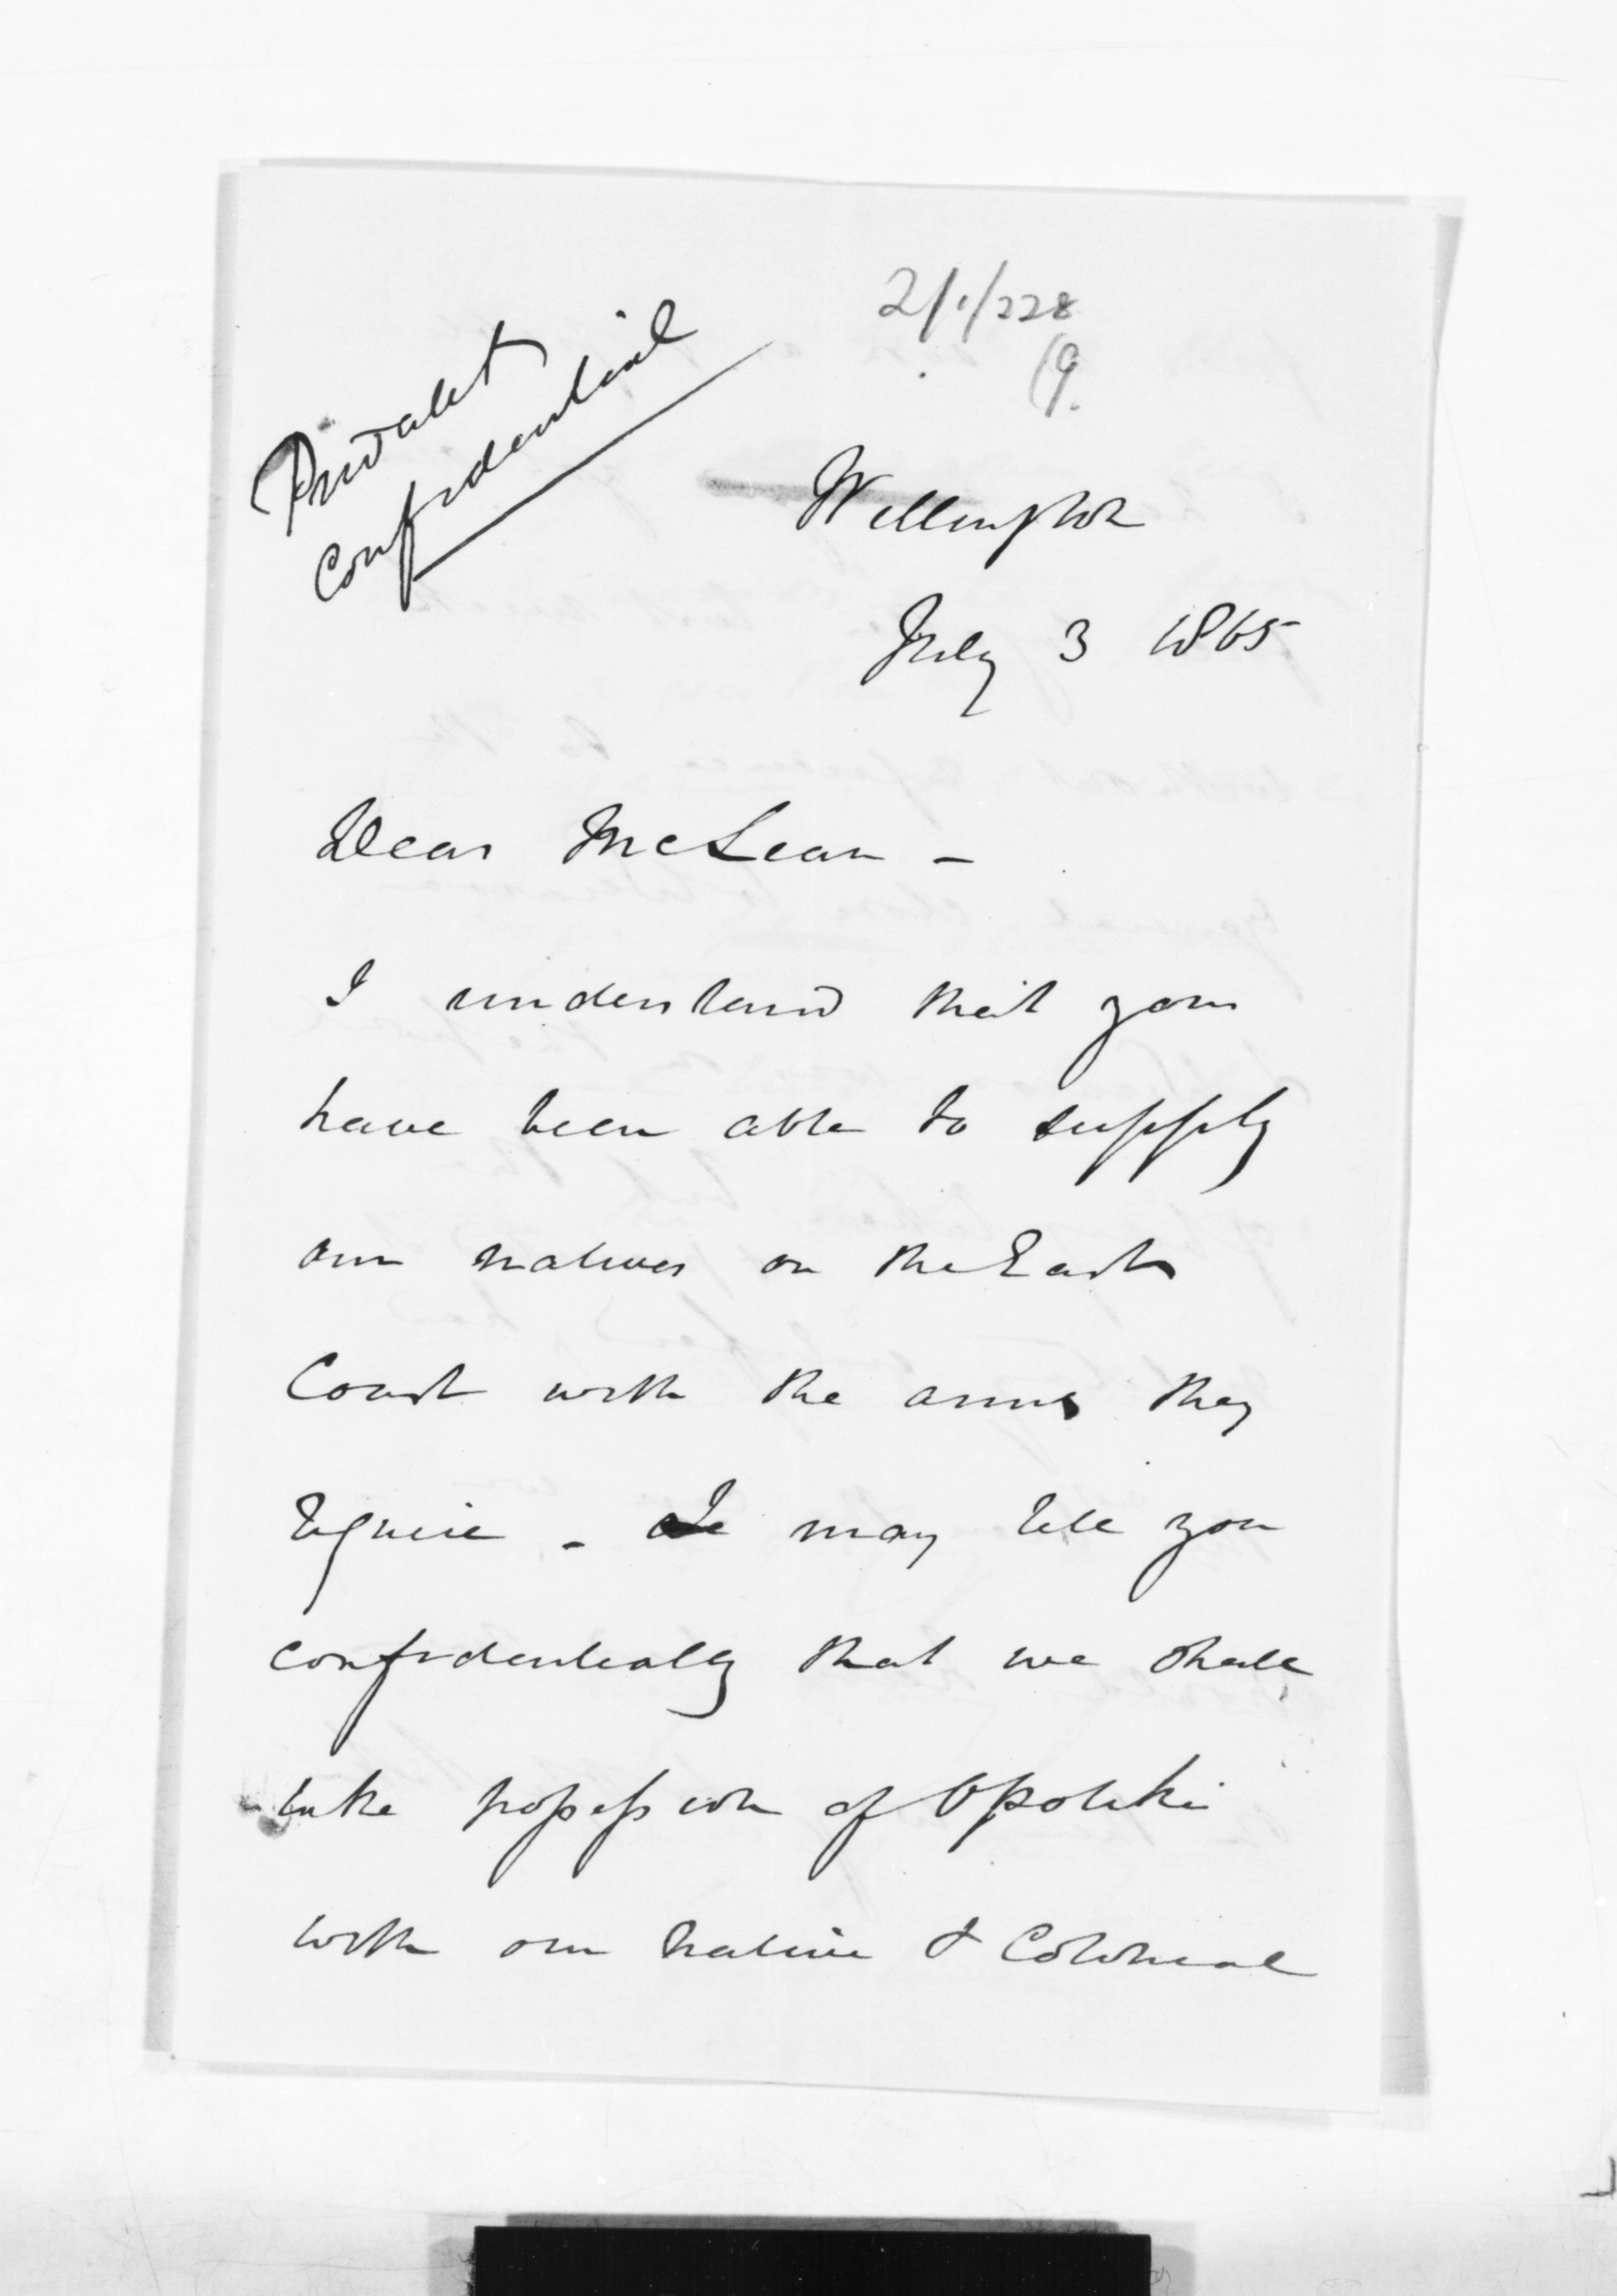 2/1/228
19.
Private &
Confidential
Wellington
July 3 1865
Dear McLean -
I understand that you
have been able to supply
our natives on the East
Coast with the arms they
require - I may tell you
confidentially that we shall
take possession of Opotiki
with our native & Colonial